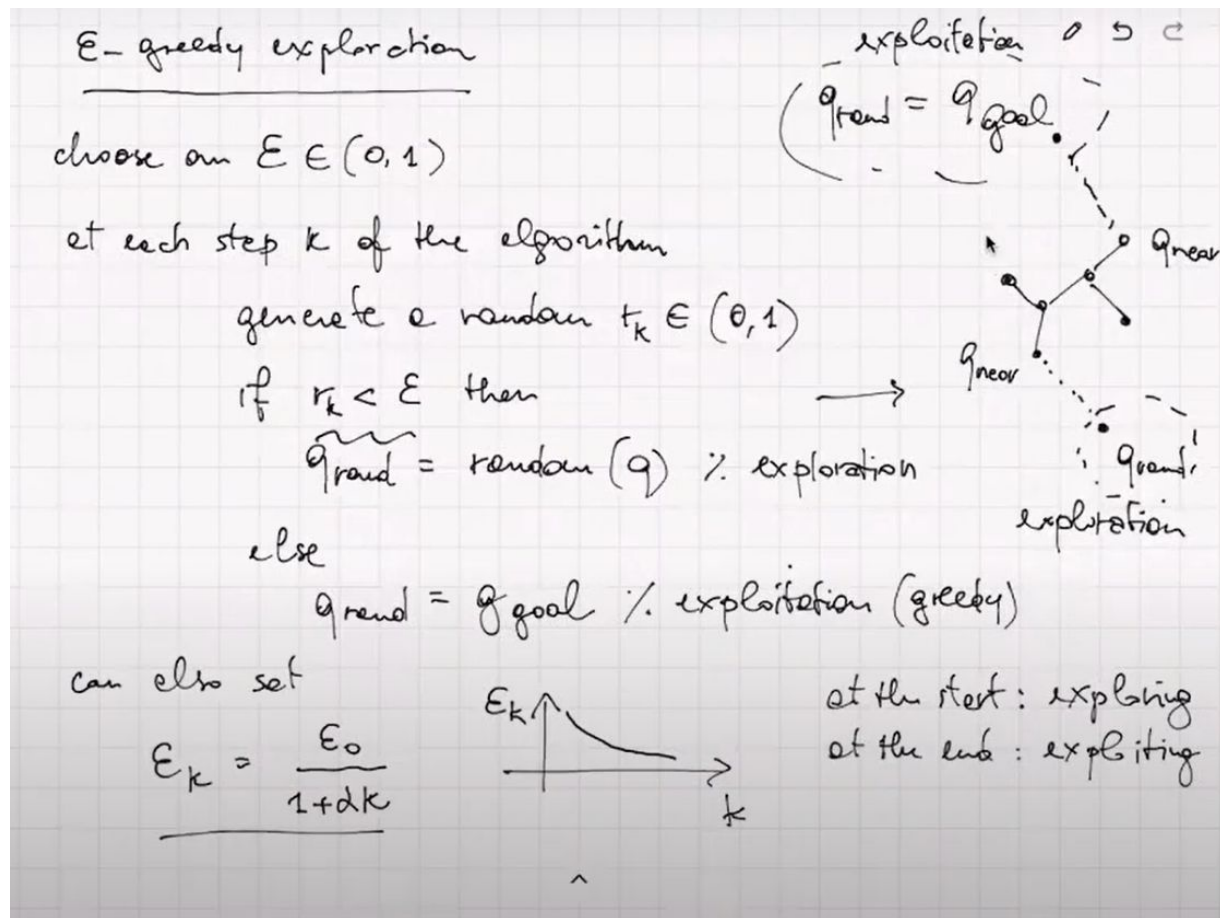 ε- greedy exploration
choose an ε ∈ (0, 1)
at each step k of the algorithm
generate a random r_k ∈ (0, 1)
if r_k < ε then
q_rand = random (q) % exploration
else
q_rand = q_goal % exploitation (greedy)
can also set
ε_k = ε_0 / (1+αk)
ε_k
k
at the start : exploring
at the end : exploiting
exploitation
q_rand = q_goal
q_near
q_near
q_rand
exploration